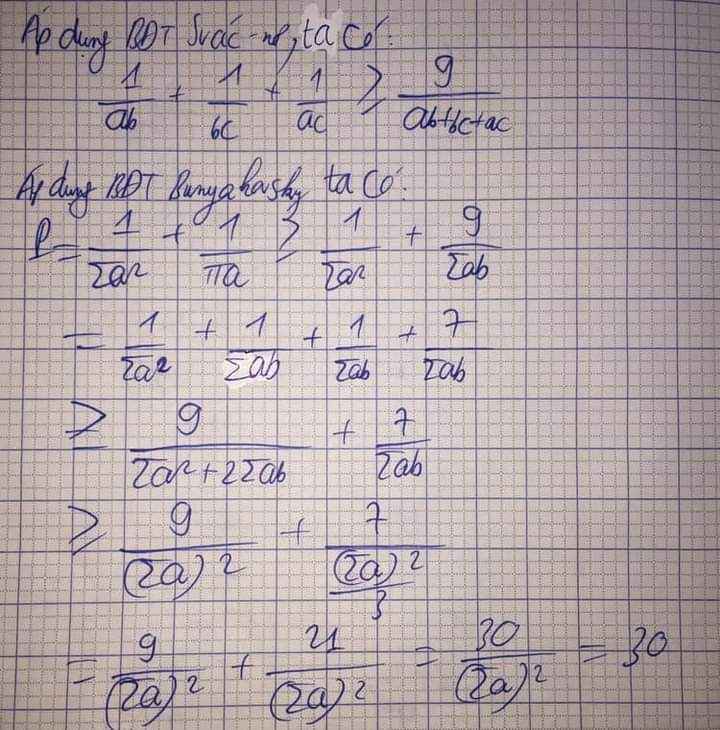 Áp dụng BĐT Svác-nơ, ta có:
1/ab + 1/bc + 1/ac ≥ 9/(ab+bc+ac)
Áp dụng BĐT Bunyakovsky ta có:
P = 1/Σa² + 1/πa ≥ 1/Σa² + 9/Σab
= 1/Σa² + 1/Σab + 1/Σab + 7/Σab
≥ 9/(Σa²+2Σab) + 7/Σab
≥ 9/(Σa)² + 7/((Σa)²/3)
= 9/(Σa)² + 21/(Σa)² = 30/(Σa)² = 30